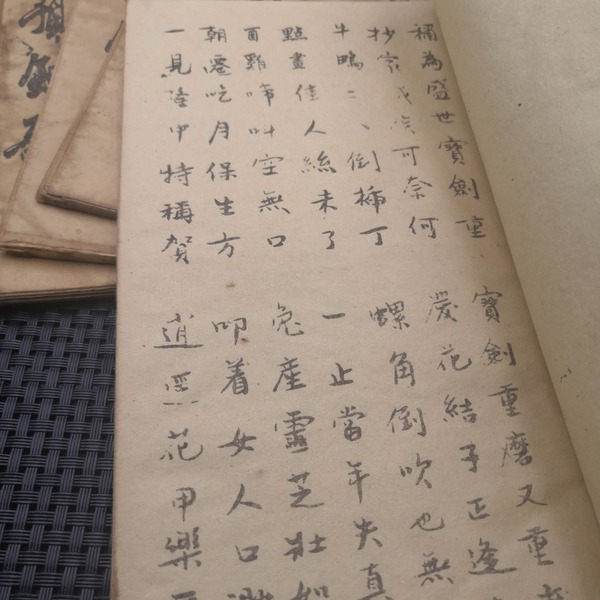 稱為盛世寶劍重
抄家可奈何
牛鴨二丶倒插丁
點畫佳人絲未了
酉雞啼叫空無口
朝吃月保生方
一見甲特稱賀
寶劍重磨又重
發花結子正逢
螺角倒吹也無
一止當年失真
兔產靈芝壯如
叩着女人口
逍花甲樂